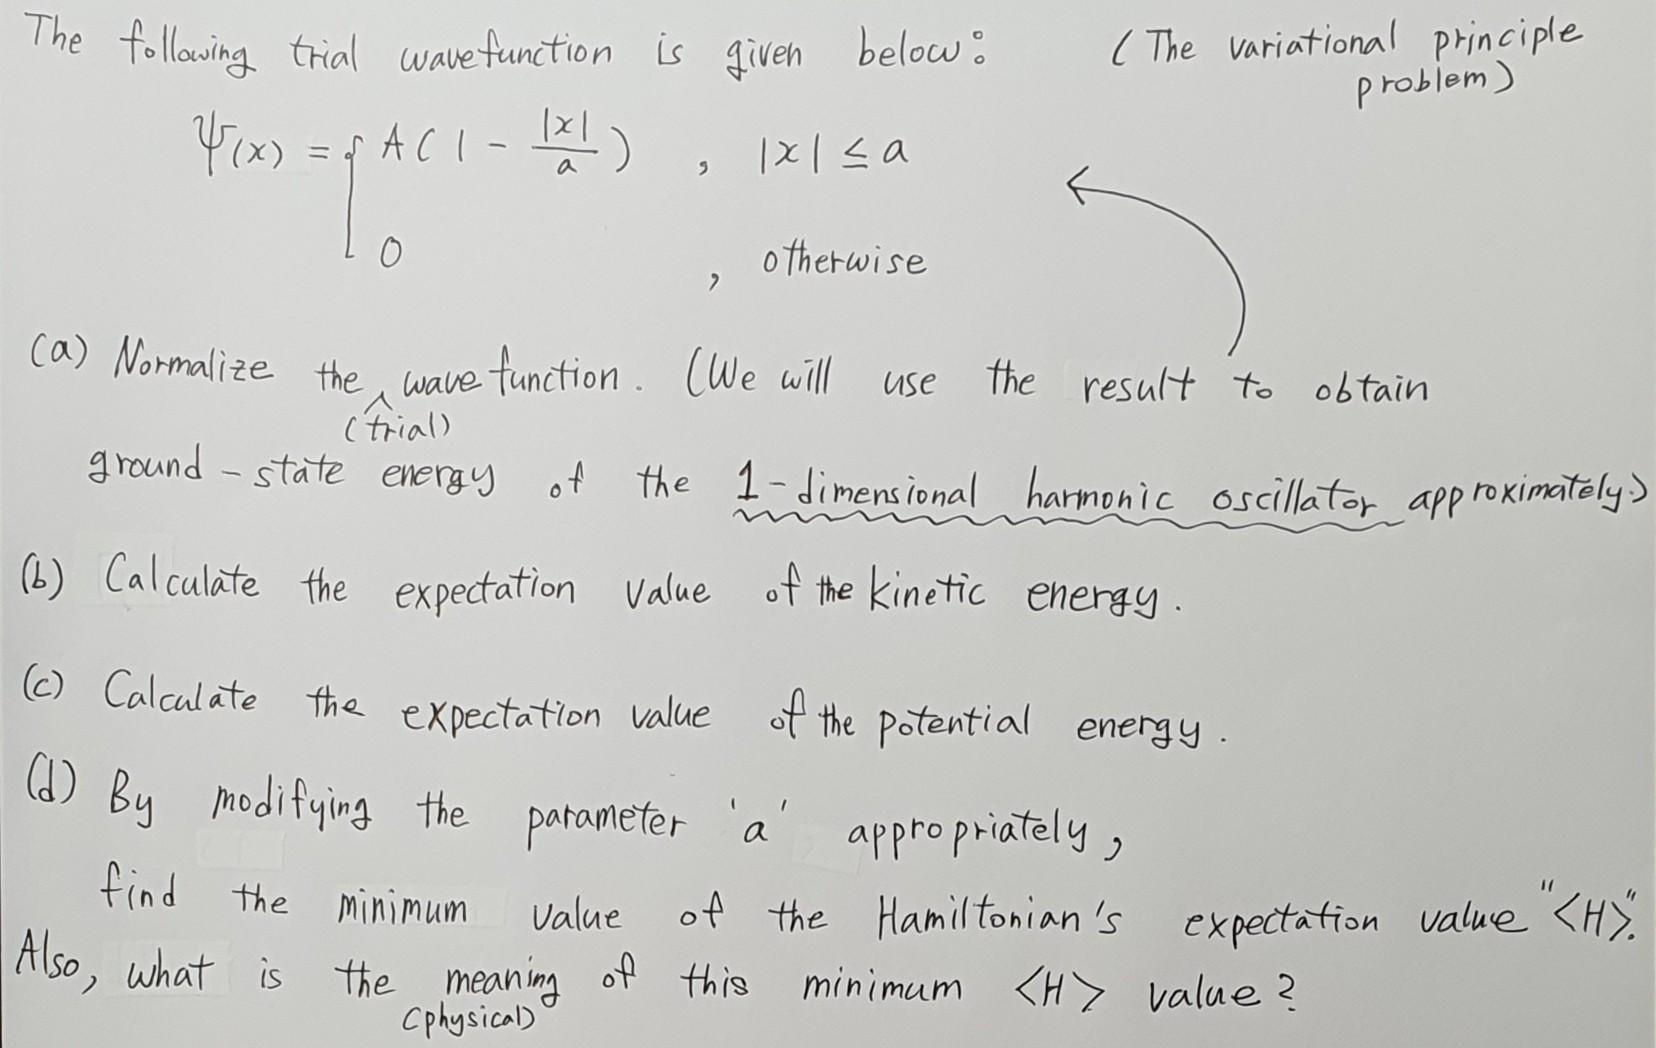 The following trial wavefunction is given below: (The variational principle problem)
Ψ(x) = { A(1 - |x|/a) , |x| ≤ a
0 , otherwise
(a) Normalize the (trial) wavefunction. (We will use the result to obtain
ground-state energy of the 1-dimensional harmonic oscillator approximately.)
(b) Calculate the expectation value of the kinetic energy.
(c) Calculate the expectation value of the potential energy.
(d) By modifying the parameter 'a' appropriately,
find the minimum value of the Hamiltonian's expectation value "<H>".
Also, what is the (physical) meaning of this minimum <H> value?